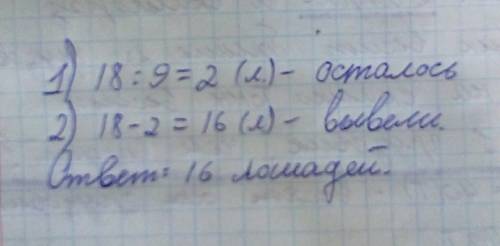 1) 18 : 9 = 2 (л.) - осталось
2) 18 - 2 = 16 (л) - вывели.
Ответ: 16 лошадей.